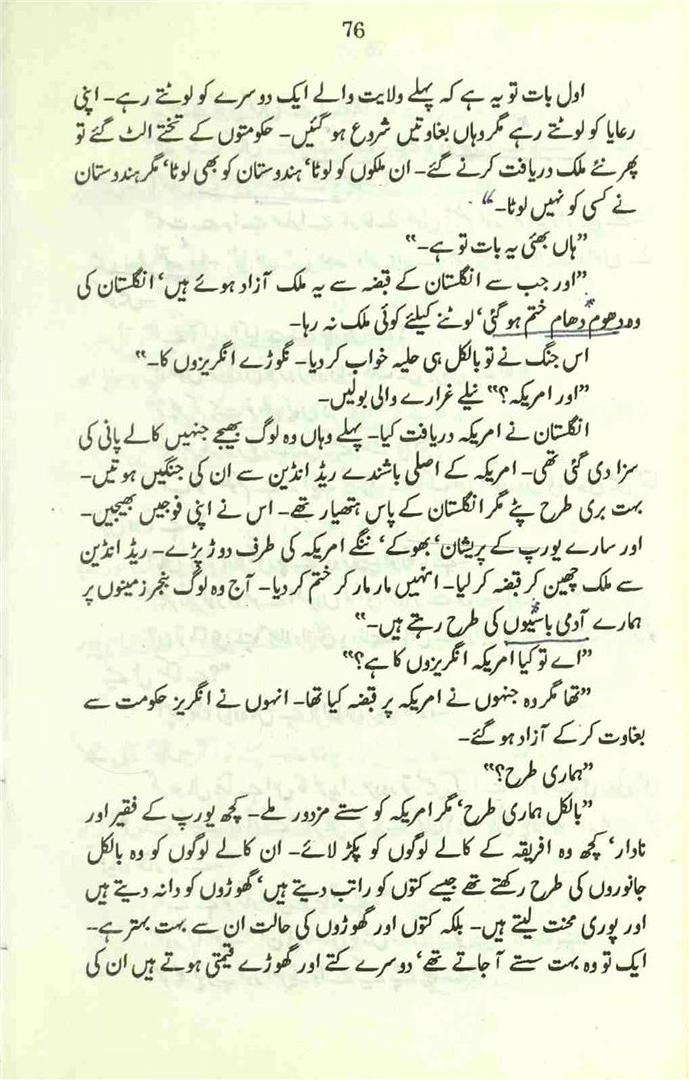 76
اول بات تو یہ ہے کہ پہلے ولایت والے ایک دوسرے کو لوٹتے رہے۔ اپنی
رعایا کو لوٹتے رہے مگر وہاں بغاوتیں شروع ہو گئیں۔ حکومتوں کے تختے الٹ گئے تو
پھر نئے ملک دریافت کرنے گئے۔ ان ملکوں کو لوٹا‘ ہندوستان کو بھی لوٹا‘ مگر ہندوستان
نے کسی کو نہیں لوٹا۔“
”ہاں بھئی یہ بات تو ہے۔“
”اور جب سے انگلستان کے قبضہ سے یہ ملک آزاد ہوئے ہیں‘ انگلستان کی
وہ دھوم دھام ختم ہو گئی‘ لوٹنے کیلئے کوئی ملک نہ رہا۔
اس جنگ نے تو بالکل ہی حلیہ خواب کر دیا۔ نگوڑے انگریزوں کا۔“
”اور امریکہ؟“ نیلے غرارے والی بولیں۔
انگلستان نے امریکہ دریافت کیا۔ پہلے وہاں وہ لوگ بھیجے جنہیں کالے پانی کی
سزا دی گئی تھی۔ امریکہ کے اصلی باشندے ریڈ انڈین سے ان کی جنگیں ہوتیں۔
بہت بری طرح پٹے مگر انگلستان کے پاس ہتھیار تھے۔ اس نے اپنی فوجیں بھیجیں۔
اور سارے یورپ کے پریشان‘ بھوکے‘ ننگے امریکہ کی طرف دوڑ پڑے۔ ریڈ انڈین
سے ملک چھین کر قبضہ کر لیا۔ انہیں مار مار کر ختم کر دیا۔ آج وہ لوگ بنجر زمینوں پر
ہمارے آدمی باسیوں کی طرح رہتے ہیں۔“
”اے تو کیا امریکہ انگریزوں کا ہے؟“
”تھا مگر وہ جنہوں نے امریکہ پر قبضہ کیا تھا۔ انہوں نے انگریز حکومت سے
بغاوت کر کے آزاد ہو گئے۔
”ہماری طرح؟“
”بالکل ہماری طرح‘ مگر امریکہ کو سستے مزدور ملے۔ کچھ یورپ کے فقیر اور
نادار‘ کچھ وہ افریقہ کے کالے لوگوں کو پکڑ لائے۔ ان کالے لوگوں کو وہ بالکل
جانوروں کی طرح رکھتے تھے جیسے کتوں کو راتب دیتے ہیں‘ گھوڑوں کو دانہ دیتے ہیں
اور پوری محنت لیتے ہیں۔ بلکہ کتوں اور گھوڑوں کی حالت ان سے بہت بہتر ہے۔
ایک تو وہ بہت سستے آ جاتے تھے‘ دوسرے کتے اور گھوڑے قیمتی ہوتے ہیں ان کی